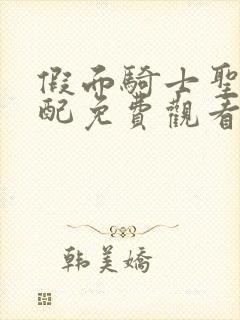 假面騎士聖
配免費觀看
韩美嬌